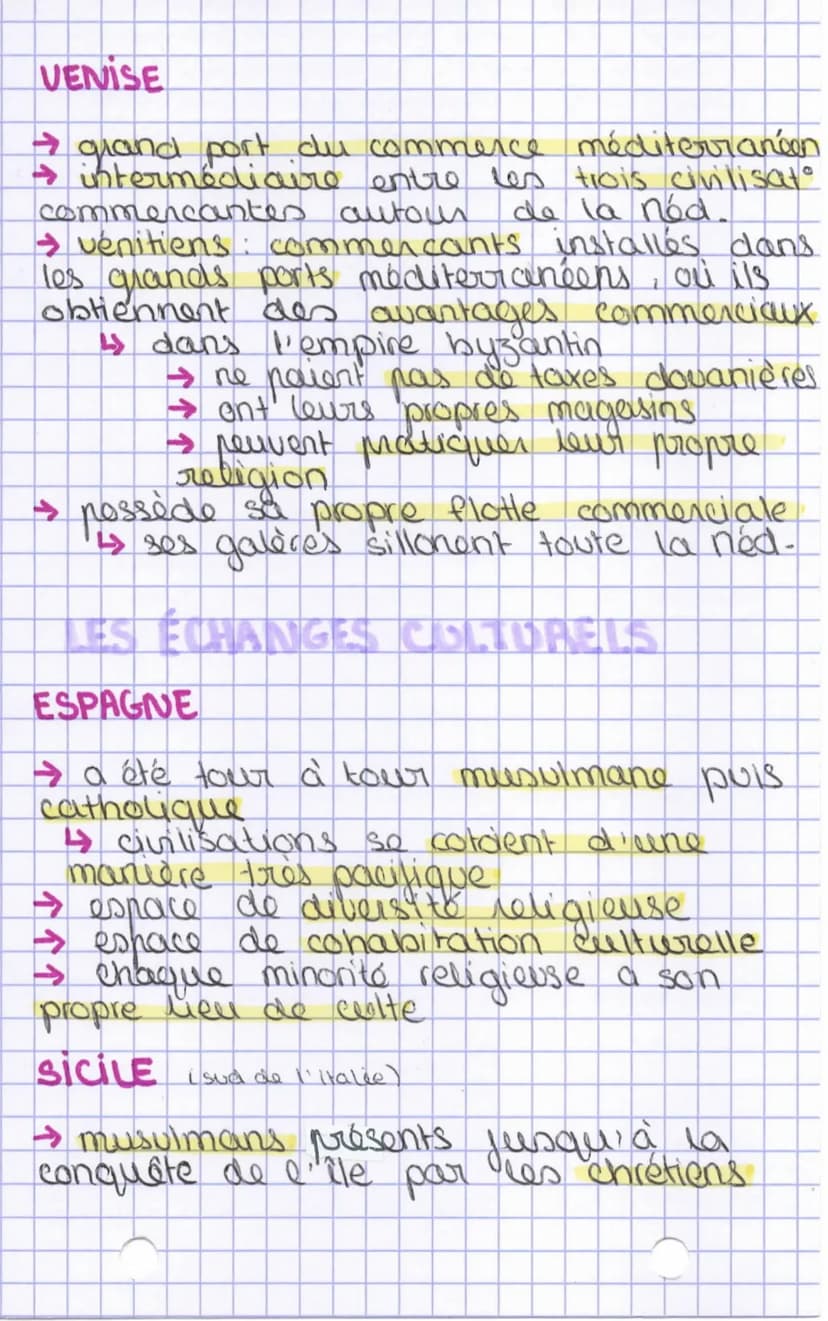 VENISE
→ grand port du commerce méditerranéen
→ intermédiaire entre les trois civilisat°
commerçantes autour de la Méd.
→ vénitiens : commerçants installés dans
les grands ports méditerranéens, où ils
obtiennent des avantages commerciaux
↳ dans l'empire byzantin
→ ne paient pas de taxes douanières
→ ont leurs propres magasins
→ peuvent pratiquer leur propre
religion
→ possède sa propre flotte commerciale
↳ ses galères sillonent toute la Méd.
LES ÉCHANGES CULTURELS
ESPAGNE
→ a été tour à tour musulmane puis
catholique
↳ civilisations se cotoient d'une
manière très pacifique
→ espace de diversité religieuse
→ espace de cohabitation culturelle
→ chaque minorité religieuse a son
propre lieu de culte
SICILE (sud de l'italie)
→ musulmans présents jusqu'à la
conquête de l'île par les chrétiens